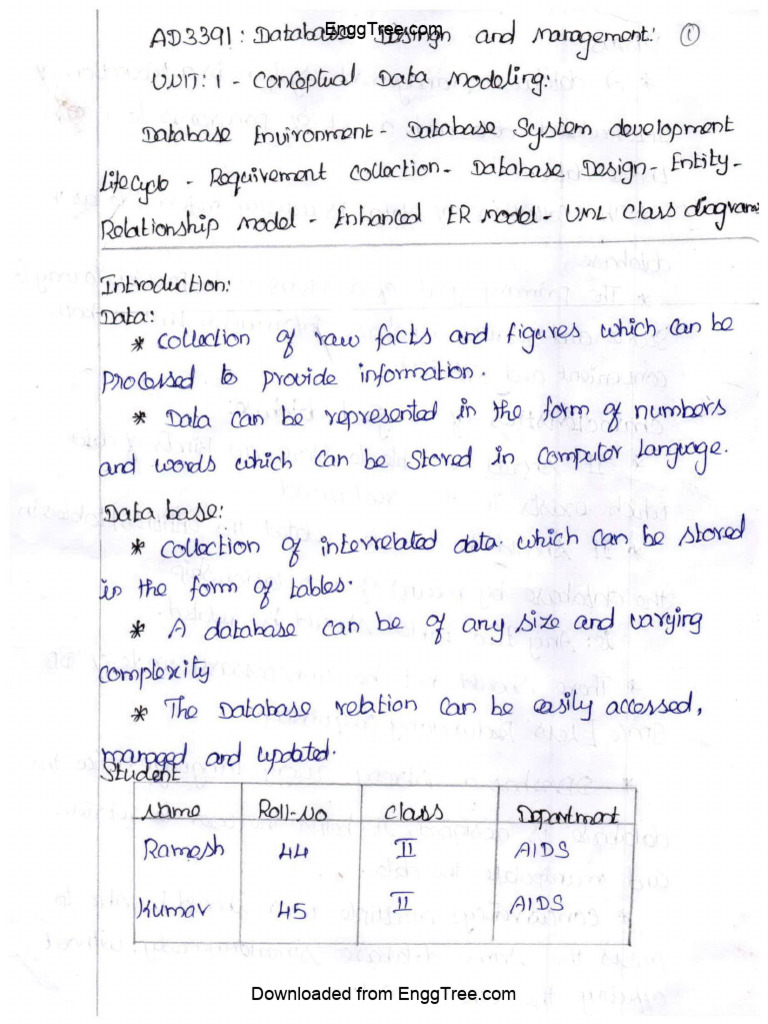 EnggTree.com
AD3391: Database Design and Management: ①
UNIT: 1 - Conceptual Data Modeling:
Database Environment - Database System development
Lifecycle - Requirement collection - Database Design - Entity-
Relationship model - Enhanced ER model - UML Class diagrams
Introduction:
Data:
* collection of raw facts and figures which can be
processed to provide information.
* Data can be represented in the form of numbers
and words which can be stored in computer language.
Data base:
* collection of interrelated data. which can be stored
in the form of tables.
* A database can be of any size and varying
complexity
* The Database relation can be easily accessed,
managed and updated.
Student
Name Roll-No class Department
Ramesh 44 II AIDS
Kumar 45 II AIDS
Downloaded from EnggTree.com